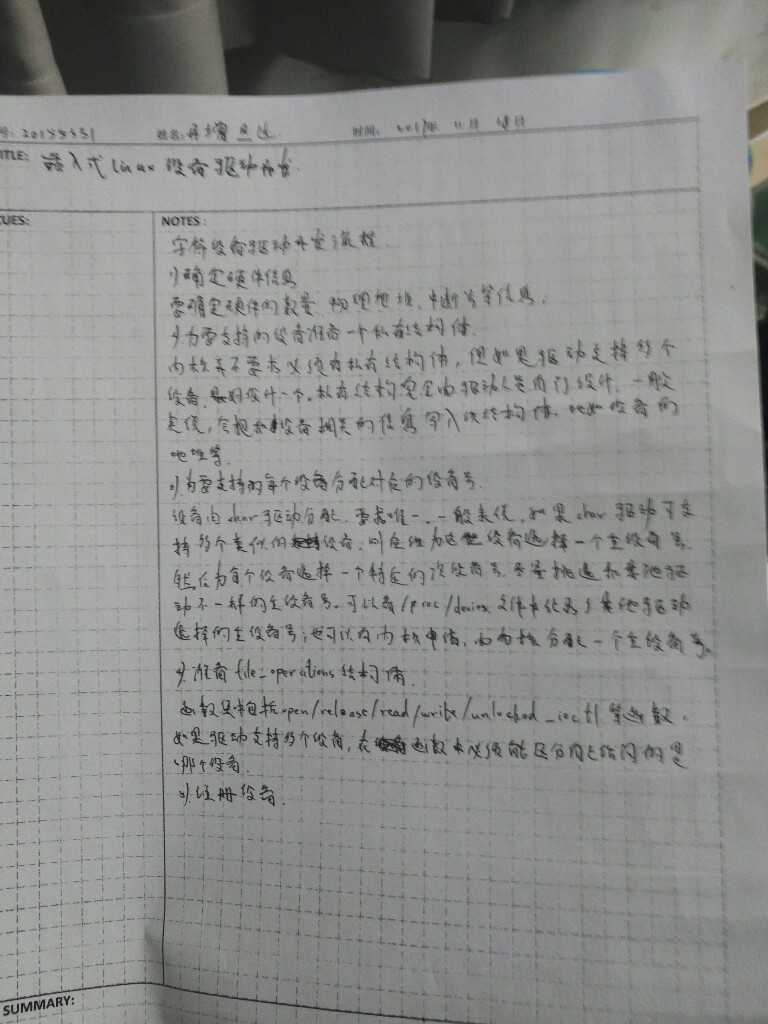 号: 20155331 姓名: 丹增旦达 时间: 2017年 11月 日
TITLE: 嵌入式linux设备驱动开发.
CUES:
NOTES:
字符设备驱动开发流程
1)确定硬件信息
要确定硬件的数量、物理地址、中断号等信息.
2)为要支持的设备准备一个私有结构体.
内核并不要求必须有私有结构体, 但如果驱动支持多个
设备, 最好设计一个. 私有结构完全由驱动人员自行设计. 一般
来说, 会把和设备相关的信息写入该结构体. 比如设备的
地址等.
3)为要支持的每个设备分配对应的设备号.
设备由char驱动分配. 要求唯一. 一般来说, 如果char驱动可支
持多个类似的设备. 则会为这些设备选择一个主设备号.
然后为每个设备选择一个特定的次设备号. 尽量挑选和其他驱
动不一样的主设备号. 可以看/proc/devices文件来 了其他驱动
选择的主设备号; 也可以在内核申请, 由内核分配一个主设备号.
4)准备file_operations结构体.
函数集中包括open/release/read/write/unlocked_ioctl等函数.
如果驱动支持多个设备, 在函数中必须能区分用户访问的是
哪个设备.
5)注册设备.
SUMMARY: